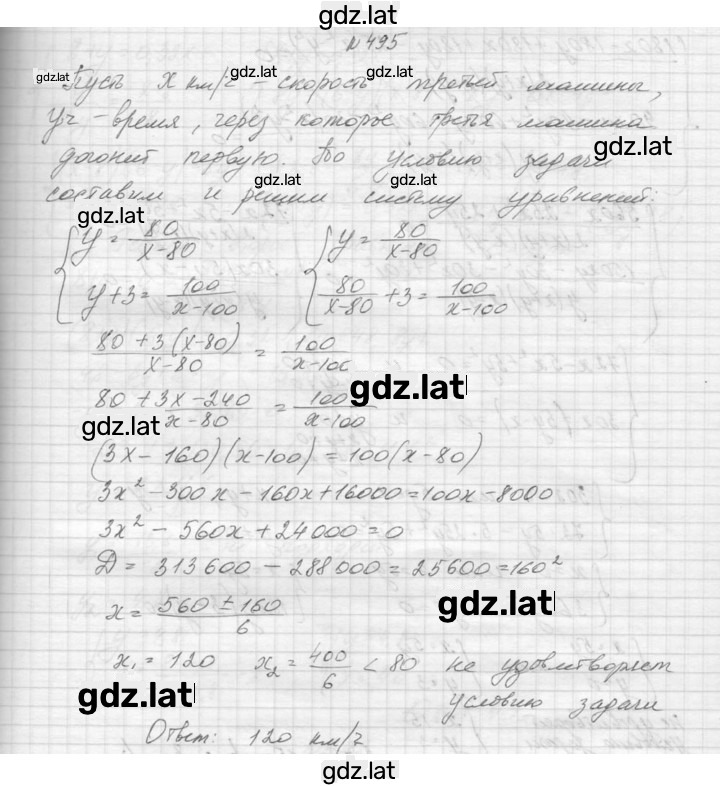 gdz.lat
№495
gdz.lat
Пусть x км/ч – скорость третьей машины,
y ч – время, через которое третья машина
gdz.lat
догонит первую. По условию задачи
gdz.lat
составим и решим систему уравнений:
gdz.lat
{ y = 80/(x-80)
{ y+3 = 100/(x-100)
{ y = 80/(x-80)
{ 80/(x-80) + 3 = 100/(x-100)
(80+3(x-80))/(x-80) = 100/(x-100)
gdz.lat
(80+3x-240)/(x-80) = 100/(x-100)
gdz.lat
(3x-160)(x-100) = 100(x-80)
3x² - 300x - 160x + 16000 = 100x - 8000
3x² - 560x + 24000 = 0
D = 313600 - 288000 = 25600 = 160²
gdz.lat
x = (560 ± 160)/6
x₁ = 120 x₂ = 400/6 < 80 не удовлетворяет
gdz.lat
условию задачи
Ответ: 120 км/ч
gdz.lat